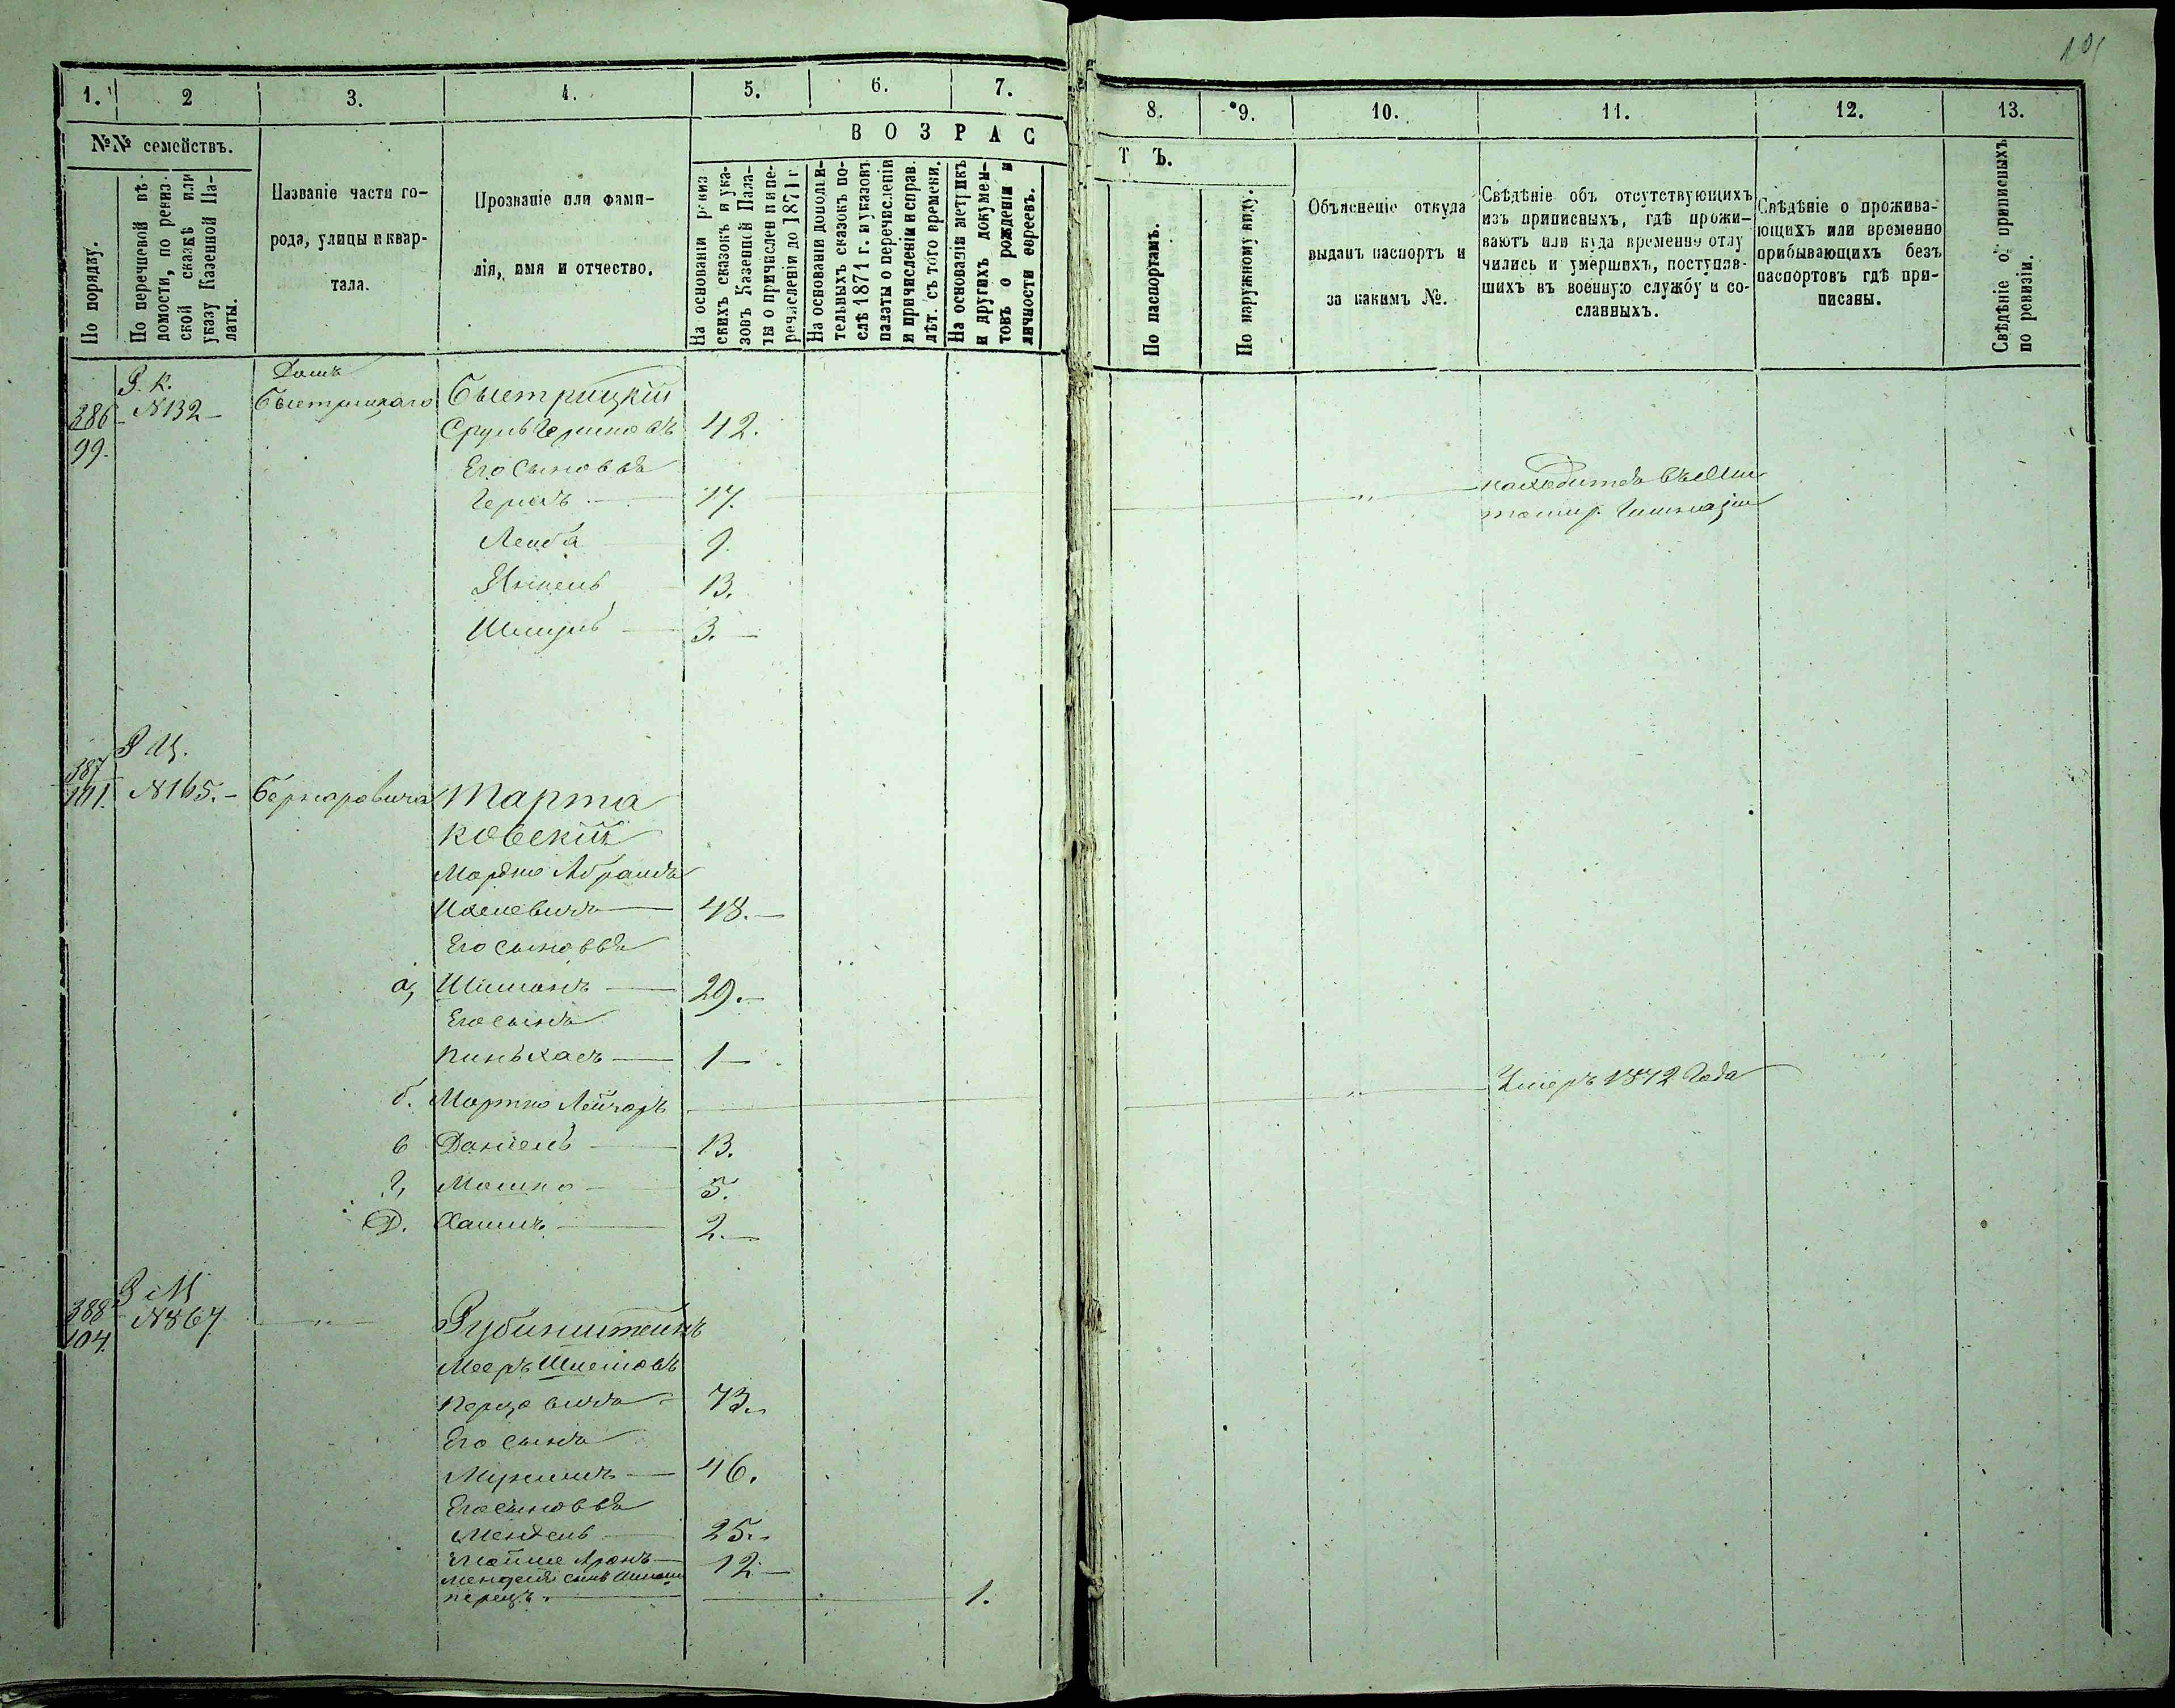 101
1. 2 3. 4. 5. 6. 7.
8. 9. 10. 11. 12. 13.
№№ семействъ.
В О З Р А С
Т Ъ.
По порядку.
По перечневой вѣ-
домости, по ревиз-
ской сказкѣ или
указу Казенной Па-
латы.
Названіе части го-
рода, улицы и квар-
тала.
Прозваніе или фами-
лія, имя и отчество.
На основаніи ревиз
скихъ сказокъ и ука-
зовъ Казенной Пала-
ты о причислен и пе-
речисленіи до 1871 г
На основаніи дополни-
тельныхъ сказокъ по-
слѣ 1871 г. и указовъ
палаты о перечисленіи
и причисленіи и справ.
лѣт. съ того времени.
На основаніи метрикъ
и другихъ докумен-
товъ о рожденіи и
личности евреевъ.
По паспортамъ.
По наружному виду.
Объясненіе откуда
выданъ паспортъ и
за какимъ №.
Свѣдѣніе объ отсутствующихъ
изъ приписныхъ, гдѣ прожи-
ваютъ или куда временно отлу
чились и умершихъ, поступив-
шихъ въ военную службу и со-
сланныхъ.
Свѣдѣніе о прожива-
ющихъ или временно
прибывающихъ безъ
паспортовъ гдѣ при-
писаны.
Свѣдѣніе о приписныхъ
по ревизіи.
Р. К. Домъ
386 N 132 Быстрицкаго Быстрицкій
99. Сруль Гершковъ 42.
Его сыновья
Гершъ 17. находится въ
Гимназіи
Лейба 9.
Янкель 13.
Шмуль 3.
387 Р М.
101. N 165. Бернаровича Марта
ковскій
Мордко Абрамъ
48.
Его сыновья
а, Шимонъ 29.
Его сынъ
Пинькасъ 1
б. Мортко Лейзоръ Умеръ 1872 Года
в Даніель 13.
г, Мошко 5.
Д. Хаимъ 2.
388 Р М
104. N 867 Рубинштейнъ
Мееръ
Перцовичъ 73.
Его сынъ
46.
Его сыновья
Мендель 25.
Аронъ 12
Менделя сынъ
перецъ 1.